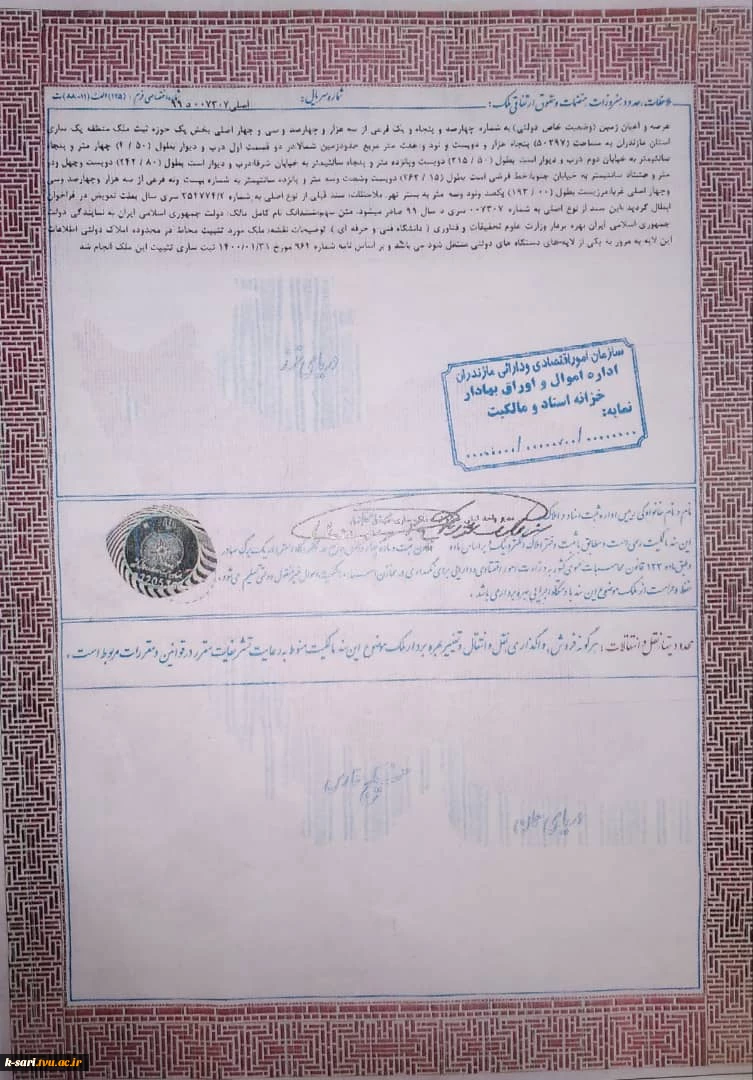 ملاحظات، حدود، مفروزات، منضمات و حقوق ارتفاقی ملک: شماره سریال: اصلی ۰۰۷۳۰۷ د ۹۹ شناسه اختصاصی فرم: (۱۲۵) الف (۱۱-۸۸) ت
عرصه و اعیان زمین (وضعیت خاص دولتی) به شماره چهارصد و پنجاه و یک فرعی از سه هزار و چهارصد و سی و چهار اصلی بخش یک حوزه ثبت ملک منطقه یک ساری
استان مازندران به مساحت (۵۰۲۹۷) پنجاه هزار و دویست و نود و هفت متر مربع حدودزمین شمالا:در دو قسمت اول درب و دیوار بطول (۵۰ / ۴) چهار متر و پنجاه
سانتیمتر به خیابان دوم درب و دیوار است بطول (۵۰ / ۲۱۵) دویست وپانزده متر و پنجاه سانتیمتر به خیابان شرقا:درب و دیوار است بطول (۸۰ / ۲۴۲) دویست وچهل ودو
متر و هشتاد سانتیمتر به خیابان جنوبا:خط فرضی است بطول (۱۵ / ۲۶۳) دویست وشصت وسه متر و پانزده سانتیمتر به شماره بیست ونه فرعی از سه هزار وچهارصد وسی
وچهار اصلی غربا:مرزیست بطول (۰۰ / ۱۹۳) یکصد ونود وسه متر به بستر نهر. ملاحظات: سند قبلی از نوع اصلی به شماره ۲۵۱۷۷۴/۲ سری سال بعلت تعویض در فراخوان
ابطال گردید .این سند از نوع اصلی به شماره ۰۰۷۳۰۷ سری د سال ۹۹ صادر میشود. متن سهم:ششدانگ نام کامل مالک: دولت جمهوری اسلامی ایران به نمایندگی دولت
جمهوری اسلامی ایران بهره بردار وزارت علوم تحقیقات و فناوری ( دانشگاه فنی و حرفه ای ) توضیحات نقشه: ملک مورد تثبیت محاط در محدوده املاک دولتی اطلاعات
این لایه به مرور به یکی از لایه‌های دستگاه های دولتی منتقل شود می باشد و بر اساس نامه شماره ۹۶۲ مورخ ۱۴۰۰/۰۱/۳۱ ثبت ساری تثبیت این ملک انجام شد
دریای خزر
سازمان اموراقتصادی ودارائی مازندران
اداره اموال و اوراق بهادار
خزانه اسناد و مالکیت
نمایه:
......../......../........
نام و نام خانوادگی رییس اداره ثبت اسناد و املاک
این سند مالکیت رسمی است و مطابق با ثبت دفتر املاک الکترونیک بر اساس ماده قانون ثبت و ماده چهار در یک برگ صادر
وطبق ماده ۱۲۲ قانون محاسبات عمومی کشور به وزارت امور اقتصادی و دارایی برای نگهداری در مخازن اسناد مالکیت اموال غیرمنقول دولتی تسلیم می‌شود.
حفظ و حراست از ملک موضوع این سند با دستگاه اجرایی بهره بردار می باشد.
محدودیتها، نقل و انتقالات : هرگونه فروش، واگذاری، نقل و انتقال و تغییر بهره بردار ملک موضوع این سند مالکیت منوط به رعایت تشریفات مقرر در قوانین و مقررات مربوط است.
خلیج فارس
دریای عمان
k-sari.tvu.ac.ir